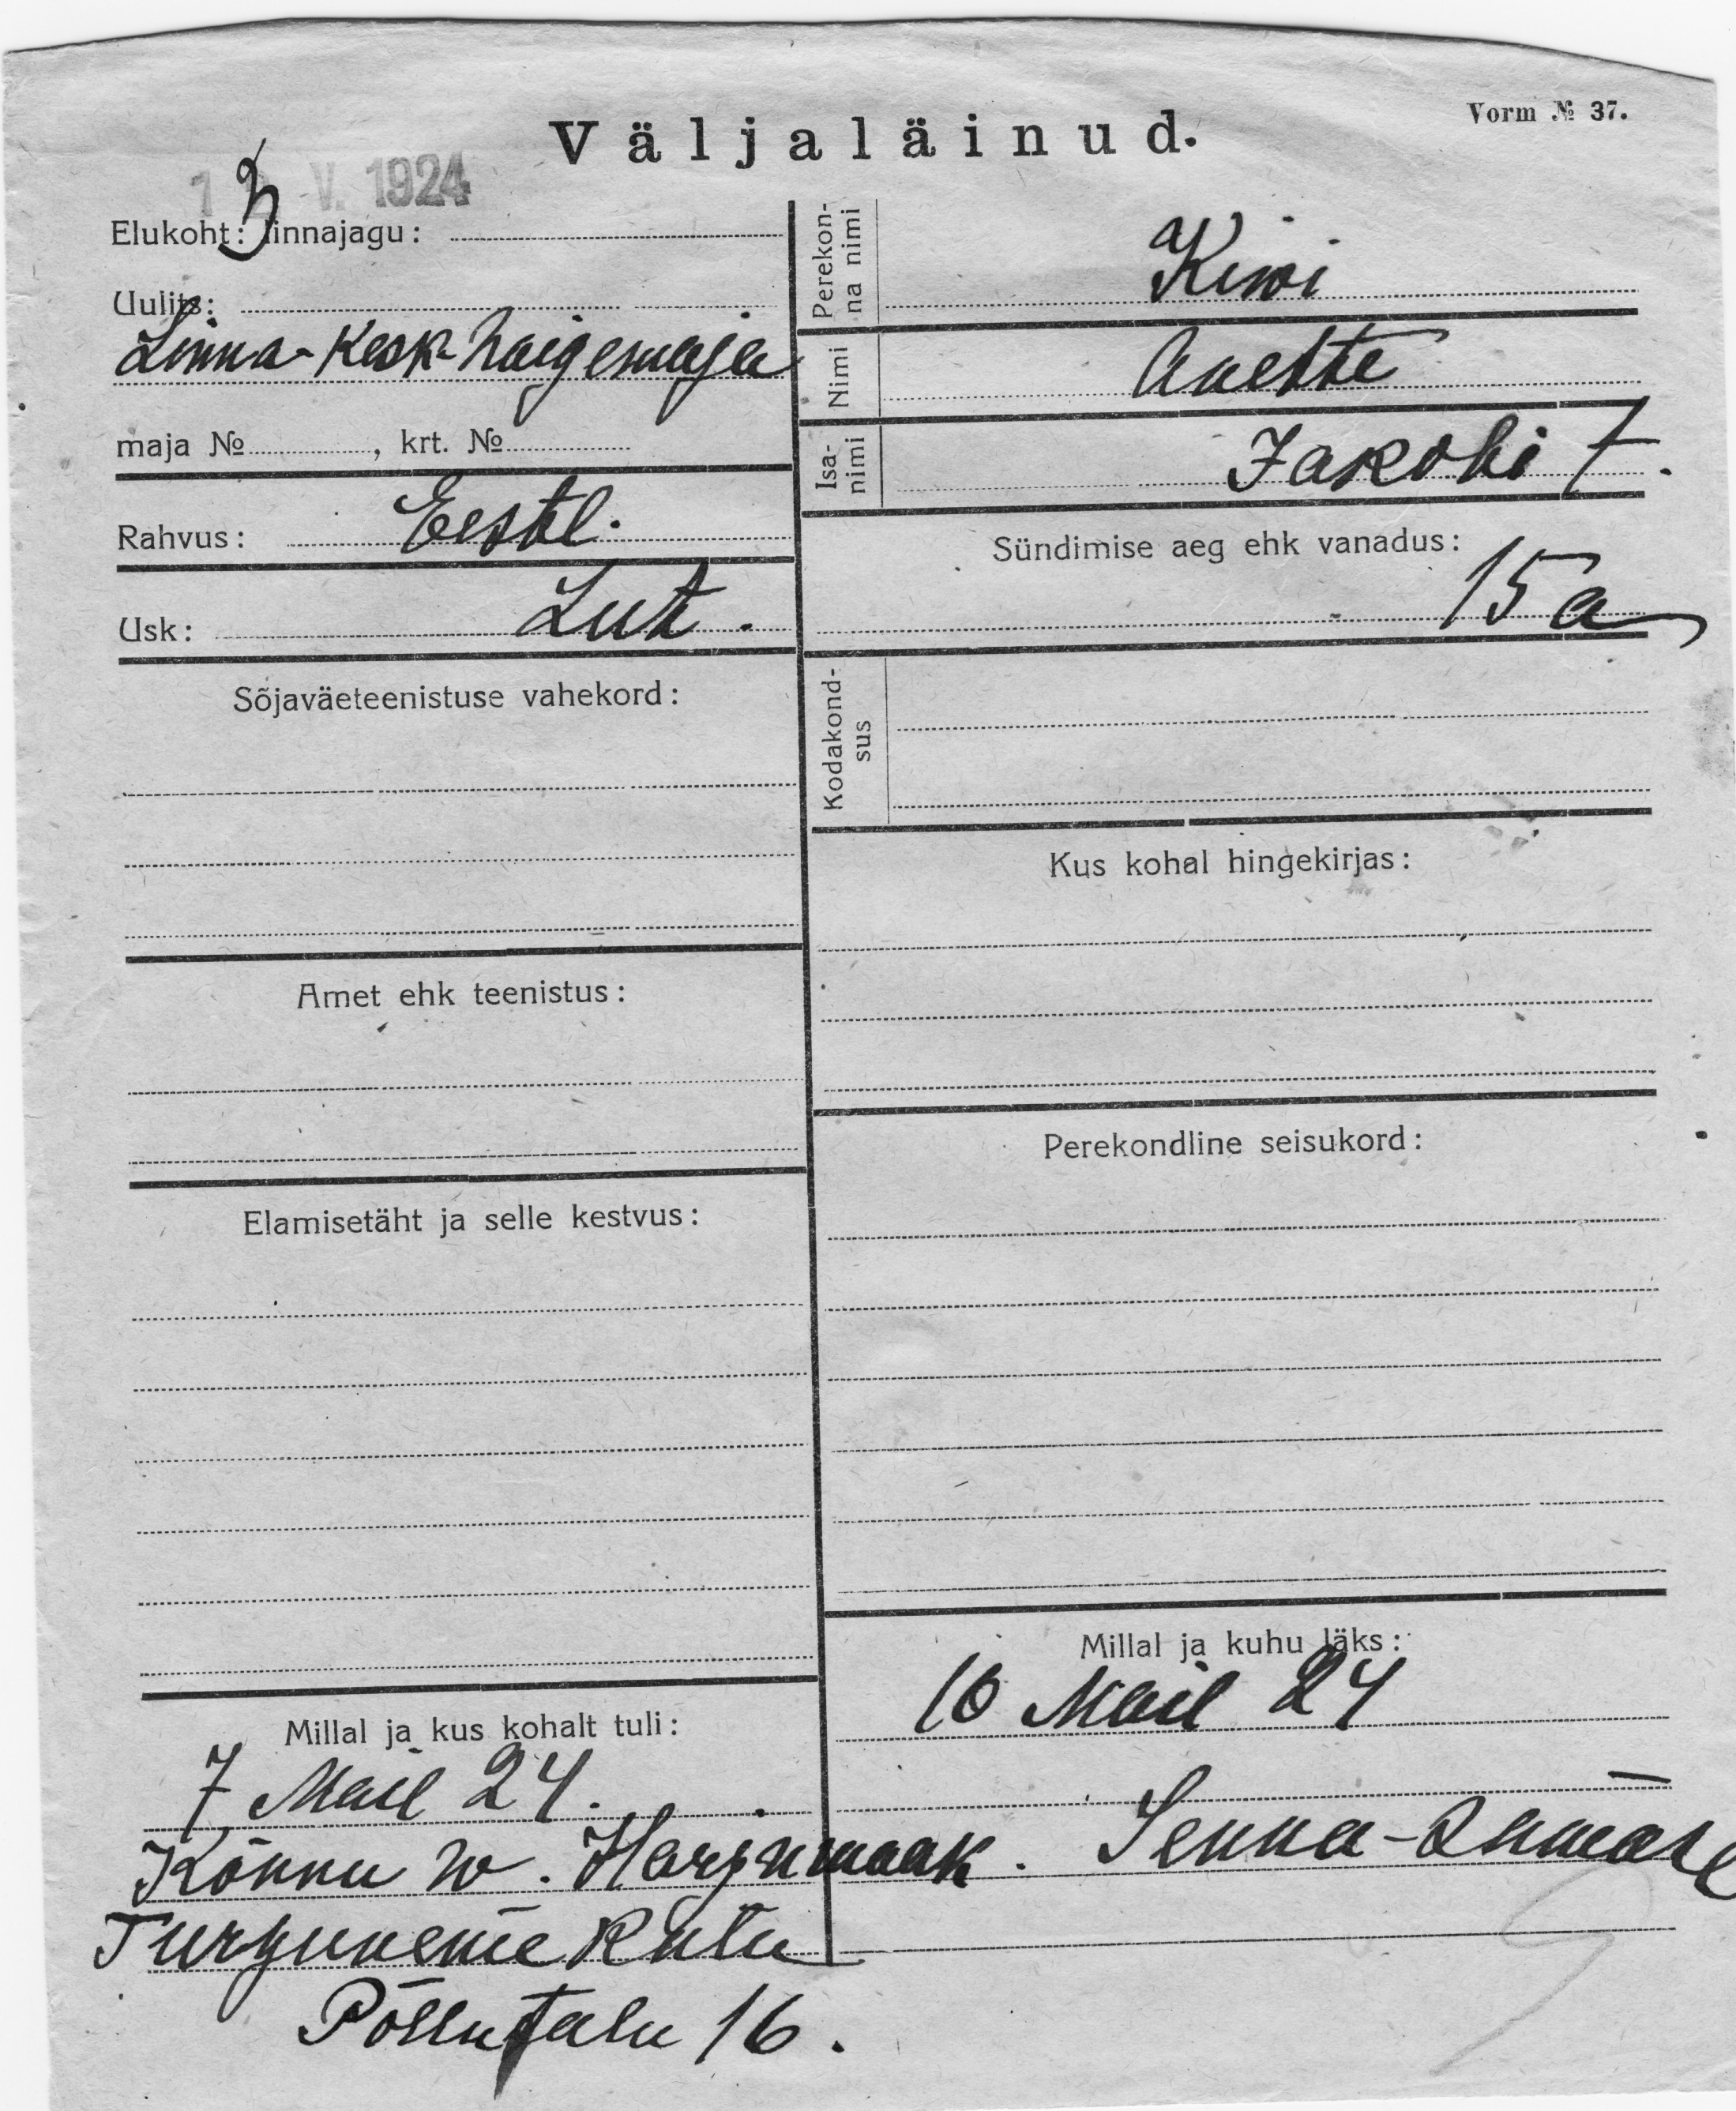 Vorm № 37.
Väljaläinud.
1 V. 1924
3
Elukoht: linnajagu:
Uulits:
Linna-Kesk-haigemaja
maja № , krt. №
Rahvus: Eestl.
Usk: Lut.
Sõjaväeteenistuse vahekord:
Amet ehk teenistus:
Elamisetäht ja selle kestvus:
Millal ja kus kohalt tuli:
7 Mail 24.
Kõnnu w. Harjumaak.
Turbuneme küla
Põllu talu 16.
Perekonna nimi
Kiwi
Nimi
Anette
Isanimi
Jakobi t.
Sündimise aeg ehk vanadus:
15 a
Kodakondsus
Kus kohal hingekirjas:
Perekondline seisukord:
Millal ja kuhu läks:
10 Mail 24